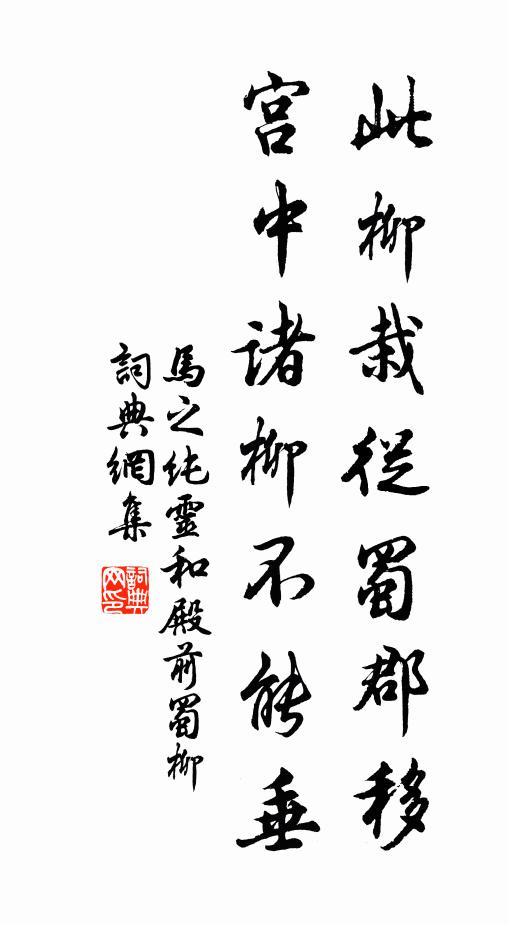 此柳栽從蜀郡移
宫中諸柳不能垂
馬之純靈和殿前蜀柳
詞典網集
詞典
网印